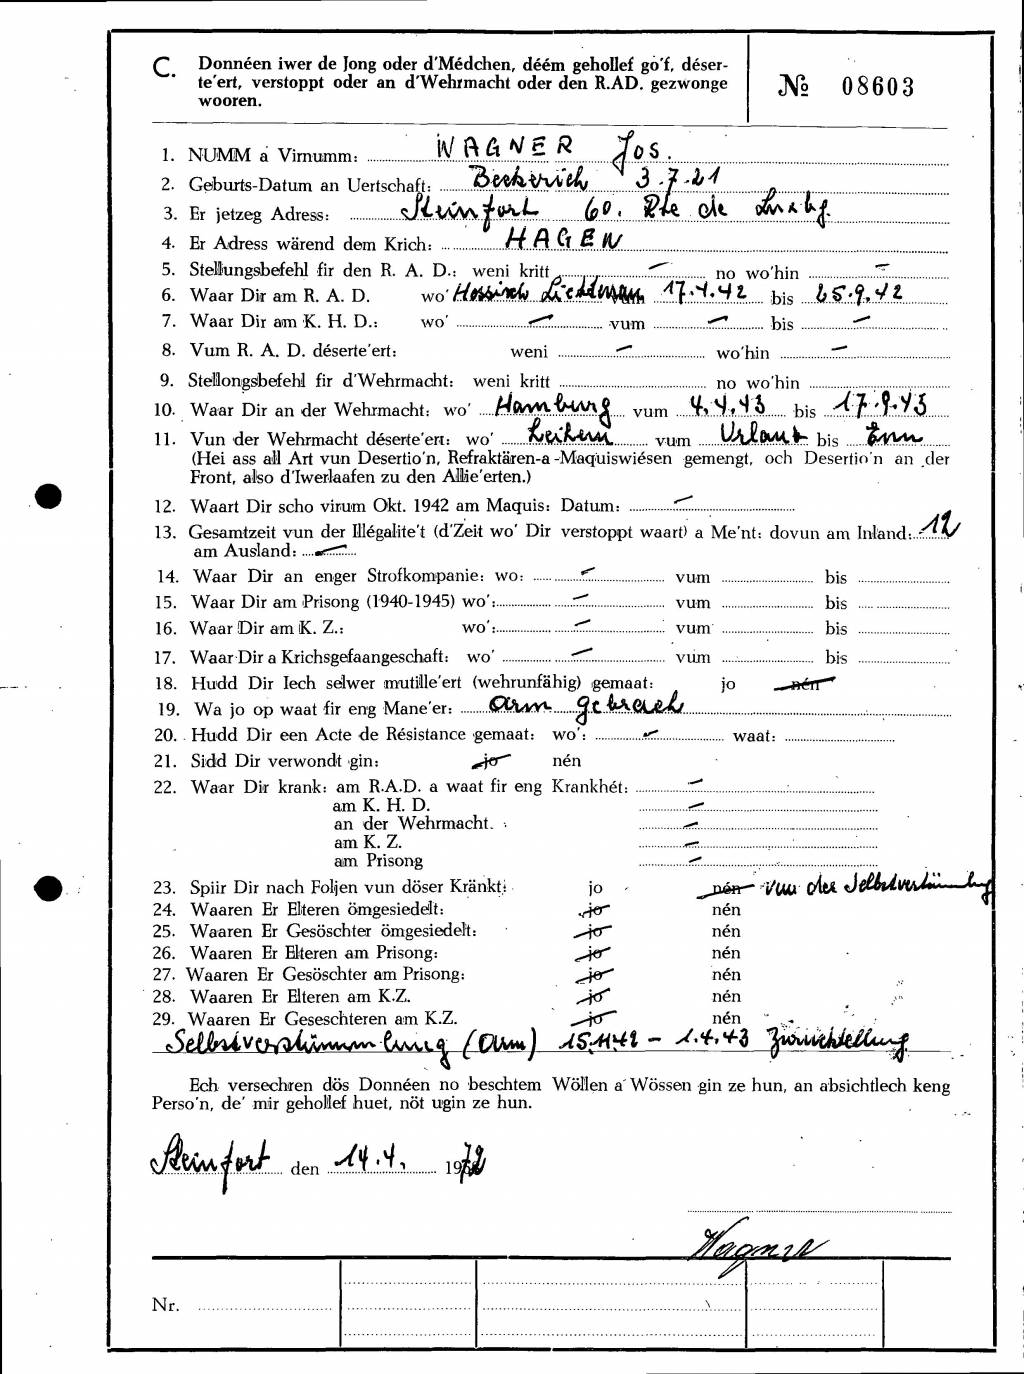 C. Donnéen iwer de Jong oder d'Médchen, déém gehollef go'f, déser-
te'ert, verstoppt oder an d'Wehrmacht oder den R.AD. gezwonge
wooren.
№ 08603
1. NUMM a Virnumm: WAGNER Jos.
2. Geburts-Datum an Uertschaft: Beckerich 3.7.21
3. Er jetzeg Adress: Steinfort 60. Rte de Luxbg.
4. Er Adress wärend dem Krich: HAGEN
5. Stellungsbefehl fir den R. A. D.: weni kritt — no wo'hin —
6. Waar Dir am R. A. D. wo' Hessisch Lichtenau 17.4.42 bis 25.9.42
7. Waar Dir am K. H. D.: wo' — vum — bis —
8. Vum R. A. D. déserte'ert: weni — wo'hin —
9. Stellongsbefehl fir d'Wehrmacht: weni kritt no wo'hin
10. Waar Dir an der Wehrmacht: wo' Hamburg vum 4.4.43 bis 17.9.43
11. Vun der Wehrmacht déserte'ert: wo' vum Urlaub bis Enn
(Hei ass all Art vun Desertio'n, Refraktären-a-Maquiswiésen gemengt, och Desertio'n an der
Front, also d'Iwerlaafen zu den Allie'erten.)
12. Waart Dir scho virum Okt. 1942 am Maquis: Datum: —
13. Gesamtzeit vun der Illégalite't (d'Zeit wo' Dir verstoppt waart) a Me'nt: dovun am Inland: 12
am Ausland: —
14. Waar Dir an enger Strofkompanie: wo: — vum bis
15. Waar Dir am Prisong (1940-1945) wo': — vum bis
16. Waar Dir am K. Z.: wo': — vum bis
17. Waar Dir a Krichsgefaangeschaft: wo' — vum bis
18. Hudd Dir Iech selwer mutille'ert (wehrunfähig) gemaat: jo nén
19. Wa jo op waat fir eng Mane'er: arm gebrach
20. Hudd Dir een Acte de Résistance gemaat: wo': — waat:
21. Sidd Dir verwondt gin: jo nén
22. Waar Dir krank: am R.A.D. a waat fir eng Krankhét: —
am K. H. D. —
an der Wehrmacht. —
am K. Z. —
am Prisong —
23. Spiir Dir nach Foljen vun döser Kränkt: jo nén vun der Selbstverstümmlung
24. Waaren Er Elteren ömgesiedelt: jo nén
25. Waaren Er Gesöschter ömgesiedelt: jo nén
26. Waaren Er Elteren am Prisong: jo nén
27. Waaren Er Gesöschter am Prisong: jo nén
28. Waaren Er Elteren am K.Z. jo nén
29. Waaren Er Geseschteren am K.Z. jo nén
Selbstverstümmelung (Arm) 15.11.42 - 1.4.43 Zurückstellung
Ech versechren dös Donnéen no beschtem Wöllen a Wössen gin ze hun, an absichtlech keng
Perso'n, de' mir gehollef huet, nöt ugin ze hun.
Steinfort den 14.4. 1972
Wagner
Nr.